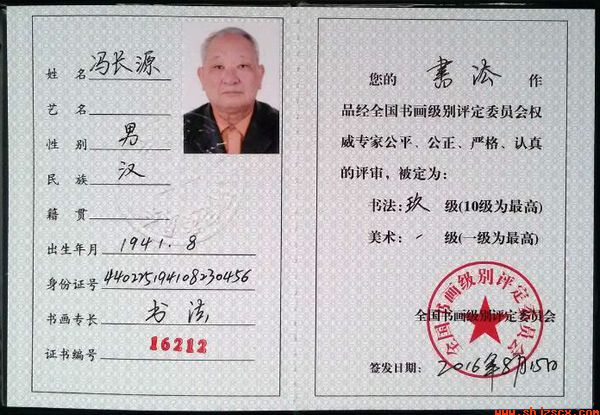 姓名 冯长源
艺名
性别 男
民族 汉
籍贯
出生年月 1941.8
身份证号 440225194108230456
书画专长 书法
证书编号 16212
您的 书法 作
品经全国书画级别评定委员会权
威专家公平、公正、严格、认真
的评审，被定为：
书法：玖 级(10级为最高)
美术： 级(一级为最高)
全国书画级别评定委员会
全国书画级别评定委员会
签发日期： 2016年8月15日
www.shjzscx.com